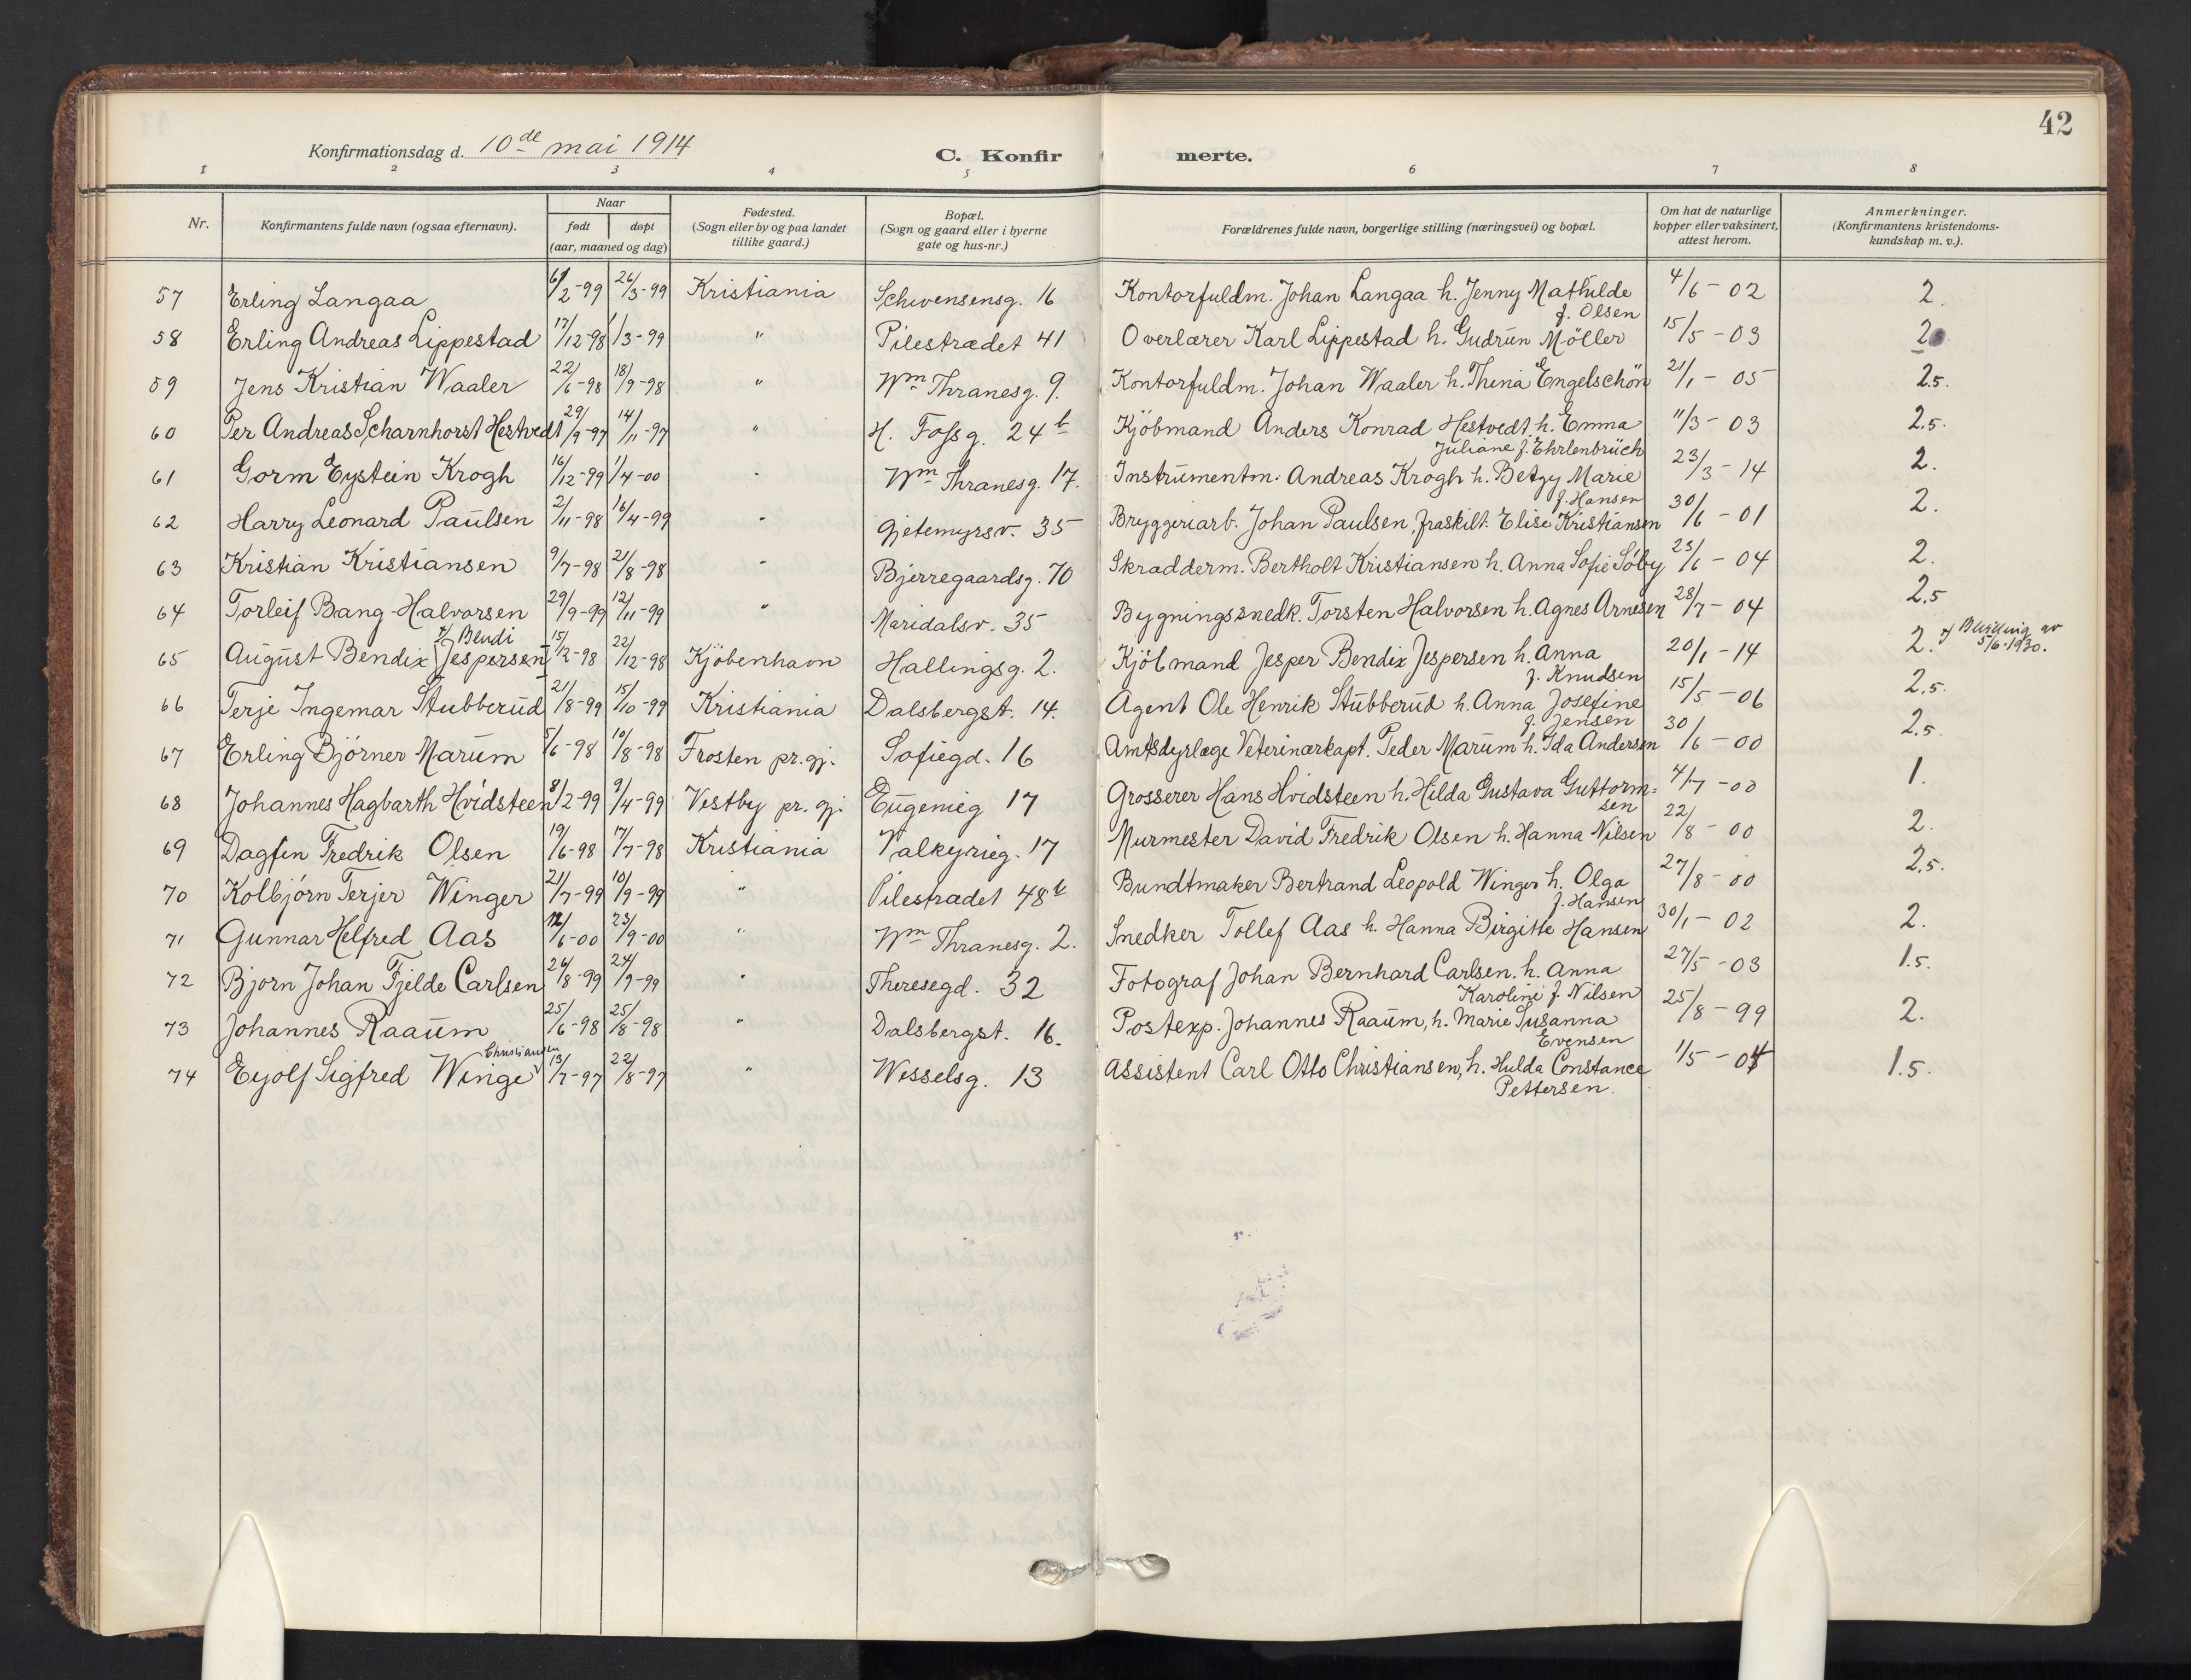 42
Konfirmationsdag d. 10de mai 1914
C. Konfirmerte.
1 2 3 4 5 6 7 8
Nr. Konfirmantens fulde navn (ogsaa efternavn). Naar født døpt (aar, maaned og dag) Fødested. (Sogn eller by og paa landet tillike gaard.) Bopæl. (Sogn og gaard eller i byerne gate og hus-nr.) Forældrenes fulde navn, borgerlige stilling (næringsvei) og bopæl. Om hat de naturlige kopper eller vaksinert, attest herom. Anmerkninger. (Konfirmantens kristendomskundskap m. v.).
57 Erling Langaa 6/2-99 26/3-99 Kristiania Schwensensg. 16 Kontorfuldm. Johan Langaa h. Jenny Mathilde f. Olsen 4/6-02 2.
58 Erling Andreas Lippestad 17/12-98 1/3-99 " Pilestrædet 41 Overlærer Karl Lippestad h. Gudrun Möller 15/5-03 2
59 Jens Kristian Waaler 22/6-98 18/9-98 " Wm Thranesg. 9. Kontorfuldm. Johan Waaler h. Thina Engelschön 21/1-05 2.5.
60 Per Andreas Scharnhorst Hestvedt 29/9-97 14/11-97 " H. Fossg. 24 b Kjöbmand Anders Konrad Hestvedt h. Emma Juliane f. Ehrlenbrüch 11/3-03 2.5.
61 Gorm Eystein Krogh 16/12-99 1/4-00 " Wm Thranesg. 17. Instrumentm. Andreas Krogh h. Betzy Marie f. Hansen 23/3-14 2.
62 Harry Leonard Paulsen 2/11-98 16/4-99 " Gjetemyrsv. 35 Bryggeriarb. Johan Paulsen, fraskilt. Elise Kristiansen 30/6-01 2.
63 Kristian Kristiansen 9/7-98 21/8-98 " Bjerregaardsg. 70 Skradderm. Bertholt Kristiansen h. Anna Sofie Söby 23/6-04 2.
64 Torleif Bang-Halvorsen 29/9-99 12/11-99 " Maridalsv. 35 Bygningssnedk. Torsten Halvorsen h. Agnes Arnesen 28/7-04 2.5
65 August Bendix Jespersen x/ Bendi 15/2-98 22/12-98 Kjöbenhavn Hallingsg. 2. Kjöbmand Jesper Bendix Jespersen h. Anna f. Knudsen 20/1-14 2. x/ Bevilling av 5/6-1930.
66 Terje Ingemar Stubberud 21/8-99 15/10-99 Kristiania Dalsbergst. 14. Agent Ole Henrik Stubberud h. Anna Josefine f. Jensen 15/5-06 2.5.
67 Erling Björner Marum 5/6-98 10/8-98 Frosten pr.gj. Sofiegd. 16 Amtsdyrlæge Veterinærkapt. Peder Marum h. Ida Andersen 30/6-00 2.5.
68 Johannes Hagbarth Hvidsteen 8/2-99 9/4-99 Vestby pr. gj. Eugenieg 17 Grosserer Hans Hvidsteen h. Hilda Gustava Guttormsen 4/7-00 1.
69 Dagfin Fredrik Olsen 19/6-98 17/7-98 Kristiania Valkyrieg. 17 Murmester David Fredrik Olsen h. Hanna Nilsen 22/8-00 2.
70 Kolbjörn Terjer Winger 21/7-99 10/9-99 " Pilestradet 48 b Bundtmaker Bertrand Leopold Winger h. Olga f. Hansen 27/8-00 2.5.
71 Gunnar Helfred Aas 12/6-00 23/9-00 " Wm Thranesg. 2. Snedker Tollef Aas h. Hanna Birgitte Hansen 30/1-02 2.
72 Bjorn Johan Fjelde Carlsen 26/8-99 24/9-99 " Theresegd. 32 Fotograf Johan Bernhard Carlsen. h. Anna Karoline f. Nilsen 27/5-03 1.5.
73 Johannes Raaum 25/6-98 25/8-98 " Dalsbergst. 16. Postexp. Johannes Raaum, h. Marie Susanna Evensen 25/8-99 2.
74 Eyolf Sigfred Winge Christiansen 13/7-97 22/8-97 " Wesselsg. 13 Assistent Carl Otto Christiansen, h. Hulda Constance Pettersen. 1/5-04 1.5.